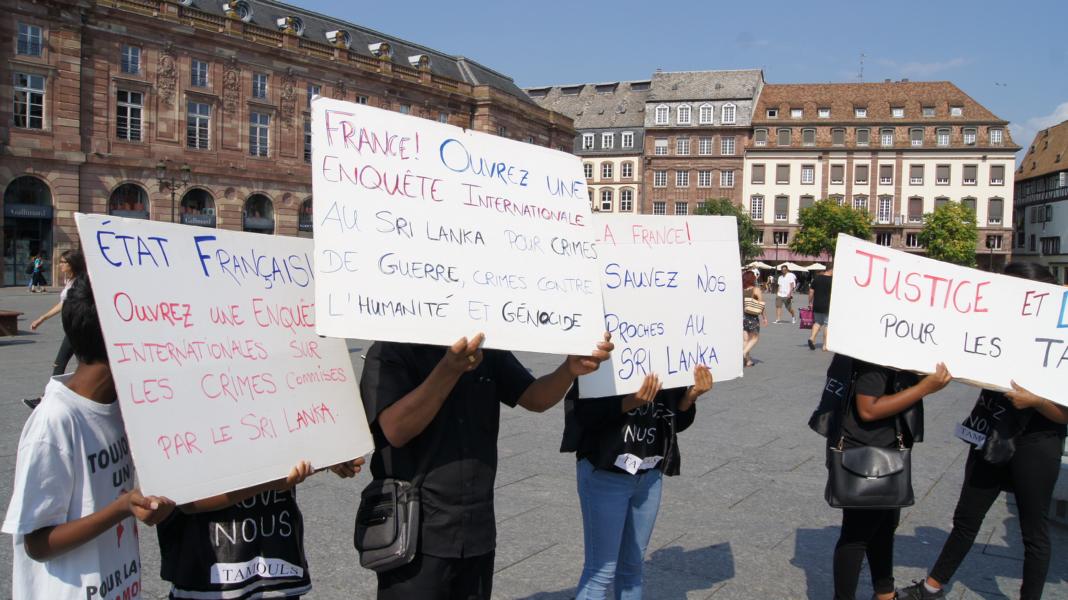 ÉTAT FRANÇAIS!
OUVREZ UNE ENQUÊ
INTERNATIONALES SUR
LES CRIMES COMMISES
PAR LE SRI LANKA.
FRANCE! OUVREZ UNE
ENQUÊTE INTERNATIONALE
AU SRI LANKA POUR CRIMES
DE GUERRE, CRIMES CONTRE
L'HUMANITÉ ET GÉNOCIDE
A FRANCE!
SAUVEZ NOS
PROCHES AU
SRI LANKA
JUSTICE ET
POUR LES TA
TOUJOU
UN
POUR LA
NOUS
TAMOULS
NUS